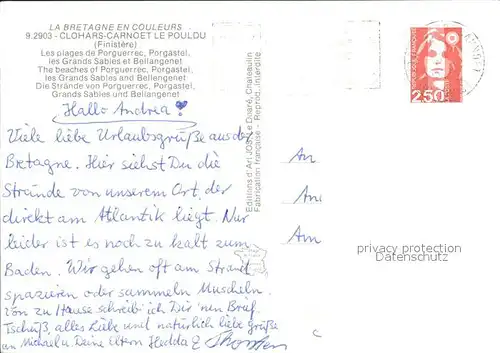 LA BRETAGNE EN COULEURS
9.2903 - CLOHARS-CARNOET LE POULDU
(Finistère)
Les plages de Porguerrec, Porgastel,
les Grands Sables et Bellangenet
The beaches of Porguerrec, Porgastel,
les Grands Sables and Bellengenet
Die Strände von Porguerrec, Porgastel,
Grands Sables und Bellangenet
Hallo Andrea!
Viele liebe Urlaubsgrüße aus der
Bretagne. Hier siehst Du die
Strände von unserem Ort, der
direkt am Atlantik liegt. Nur
leider ist es noch zu kalt zum
Baden. Wir gehen oft am Strand
spazieren oder sammeln Muscheln.
Von zu Hause schreib' ich Dir 'nen Brief.
Tschüß, alles Liebe und natürlich liebe Grüße
an Michael u. Deine Eltern Hedda & Thorsten
Editions d'Art JOS Le Doaré, Chateaulin
Fabrication française - Reprod. interdite
REPUBLIQUE FRANÇAISE
2,50
An
An
Am
privacy protection
Datenschutz